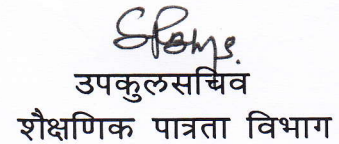 उपकुलसचिव
शैक्षणिक पात्रता विभाग